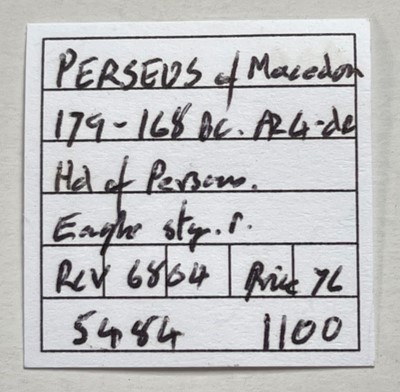 PERSEUS of Macedon
179-168 BC. AR 4-dr
Hd of Perseus.
Eagle stg. r.
RCV 6804 Price 76
5484 1100